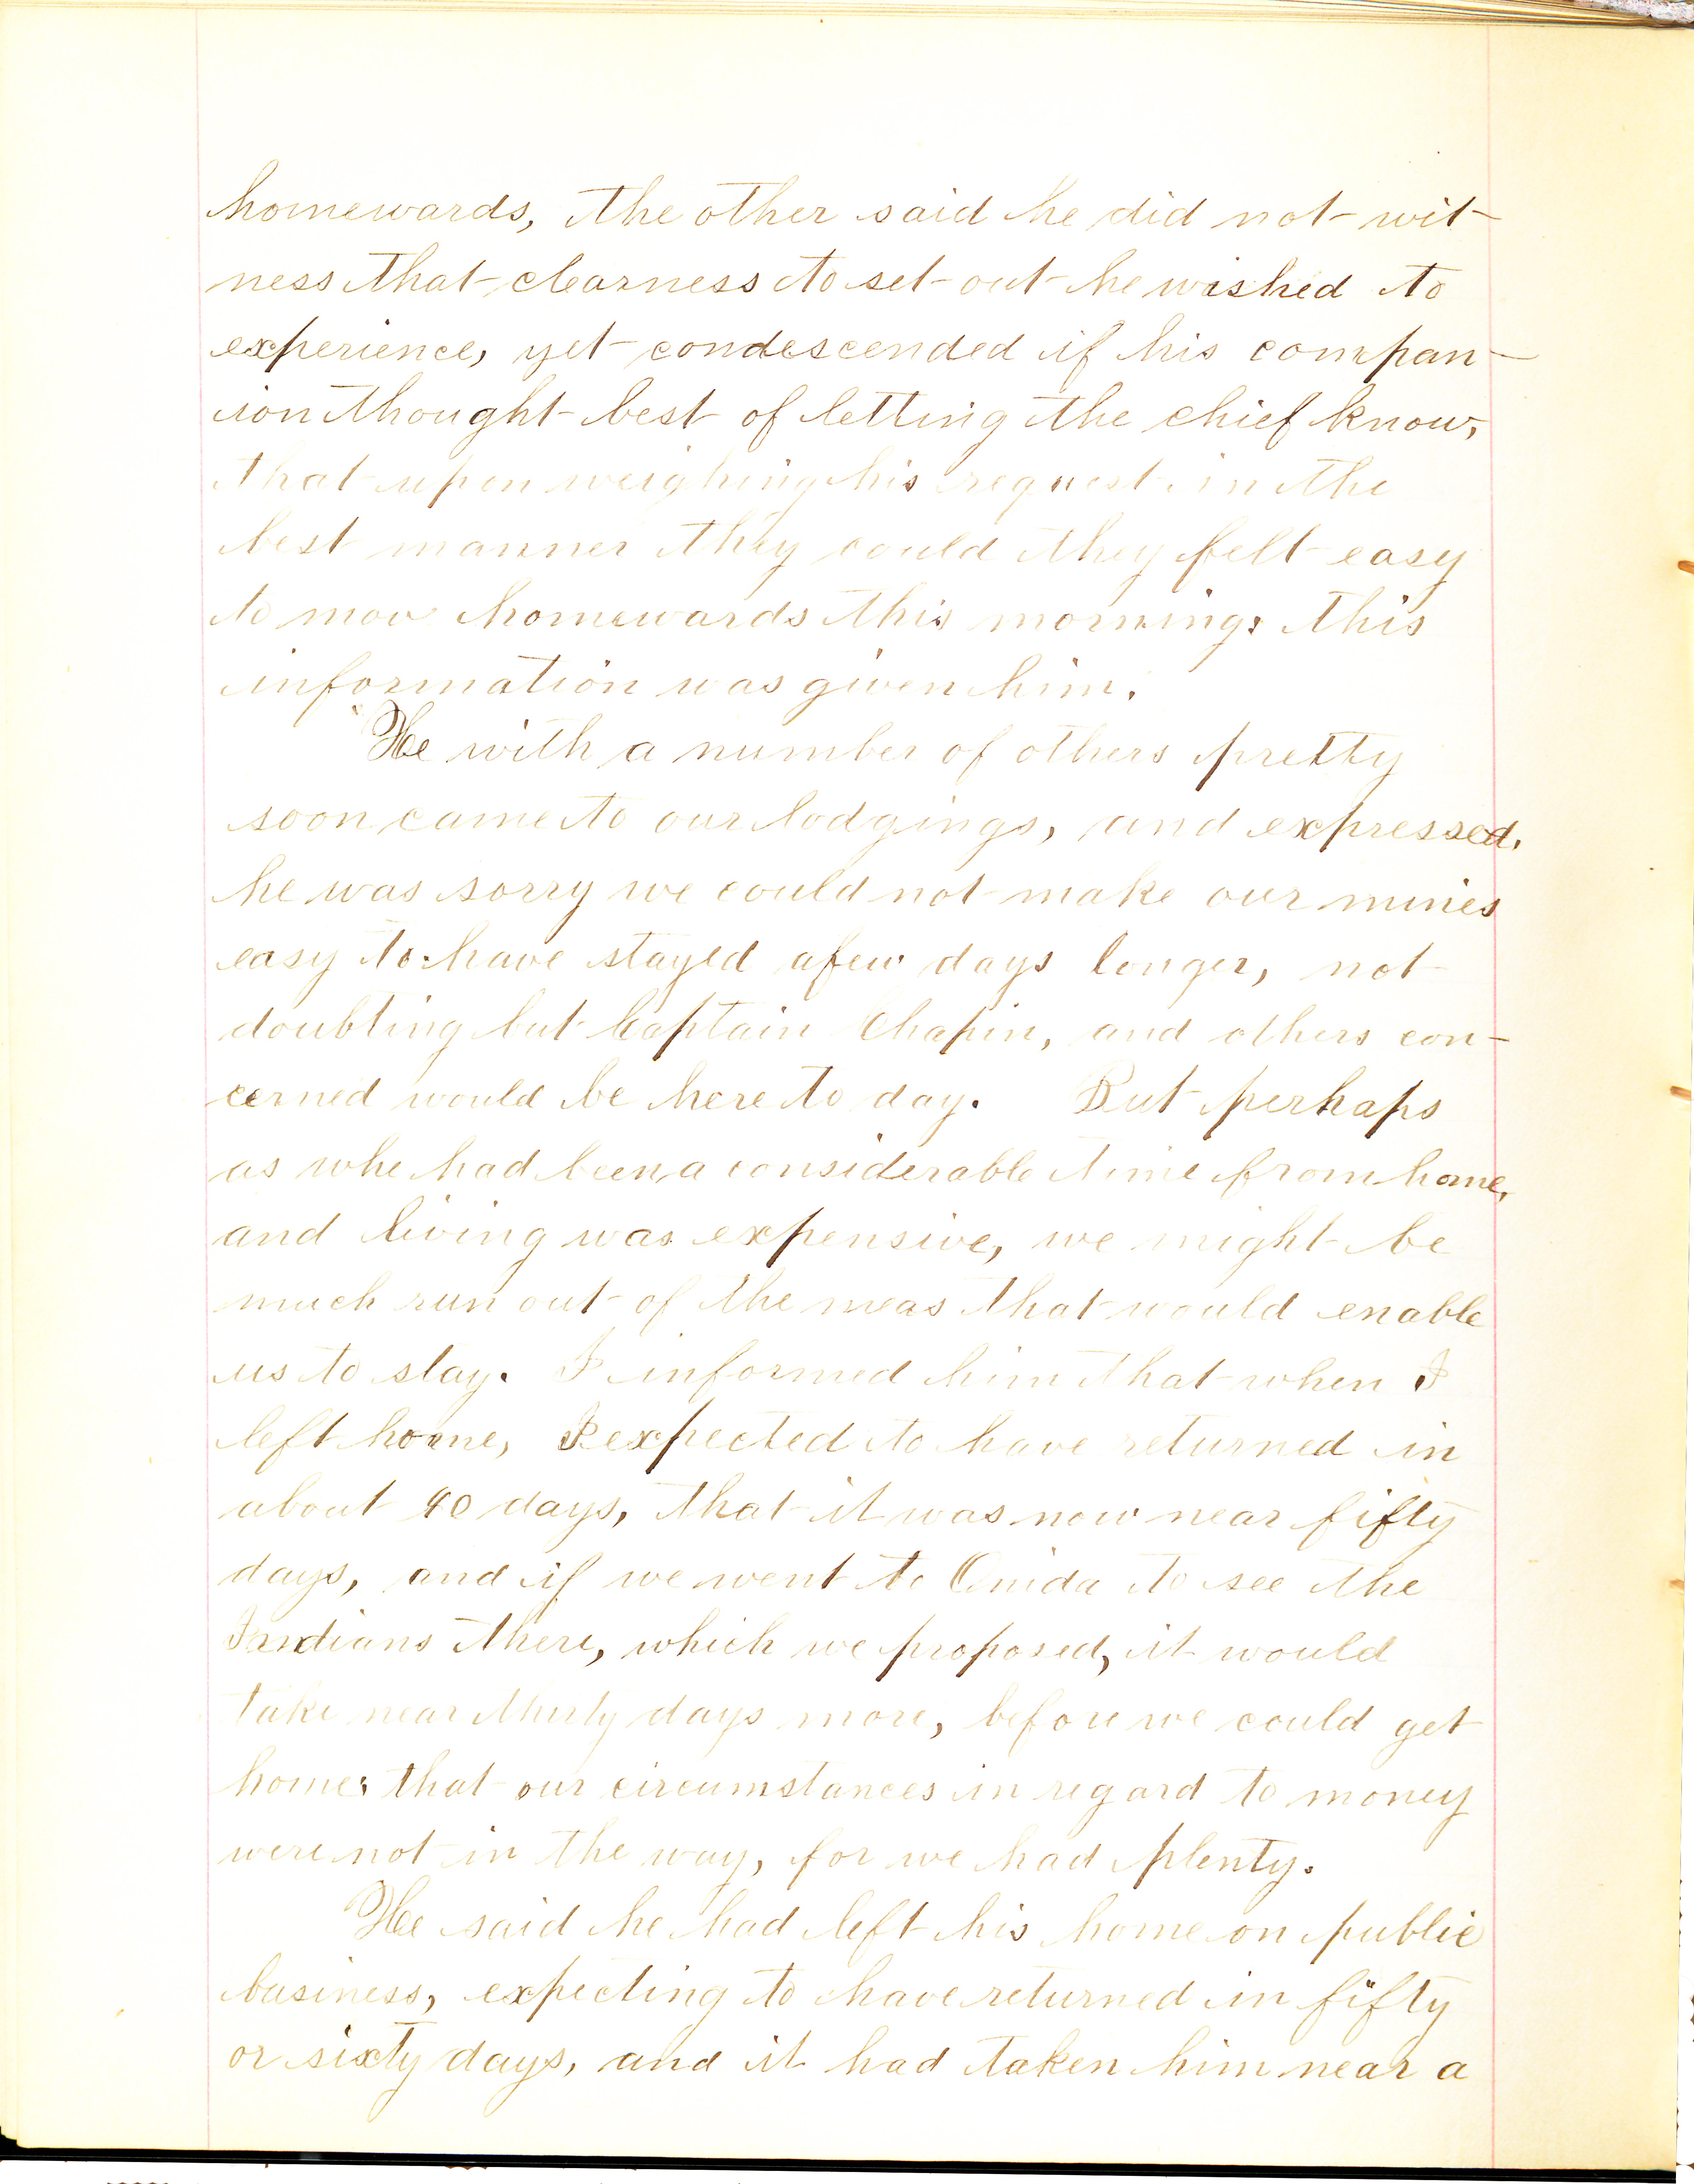 homewards, the other said he did not wit-
ness that clearness to set out he wished to
experience, yet condescended if his compan-
ion thought best of letting the chief know,
that upon weighing his request in the
best manner they could they felt easy
to mov homewards this morning: this
information was given him.
He with a number of others pretty
soon came to our lodgings, and expressed,
he was sorry we could not make our minies
easy to have stayed a few days longer, not
doubting but Captain Chapin, and others con-
cerned would be here to day. But perhaps
as whe had been a considerable time from home,
and living was expensive, we might be
much run out of the meas that would enable
us to stay. I informed him that when I
left home, I expected to have returned in
about 40 days, that it was now near fifty
days, and if we went to Onida to see the
Indians there, which we proposed, it would
take near thirty days more, before we could get
home: that our circumstances in regard to money
were not in the way, for we had plenty.
He said he had left his home on public
business, expecting to have returned in fifty
or sixty days, and it had taken him near a